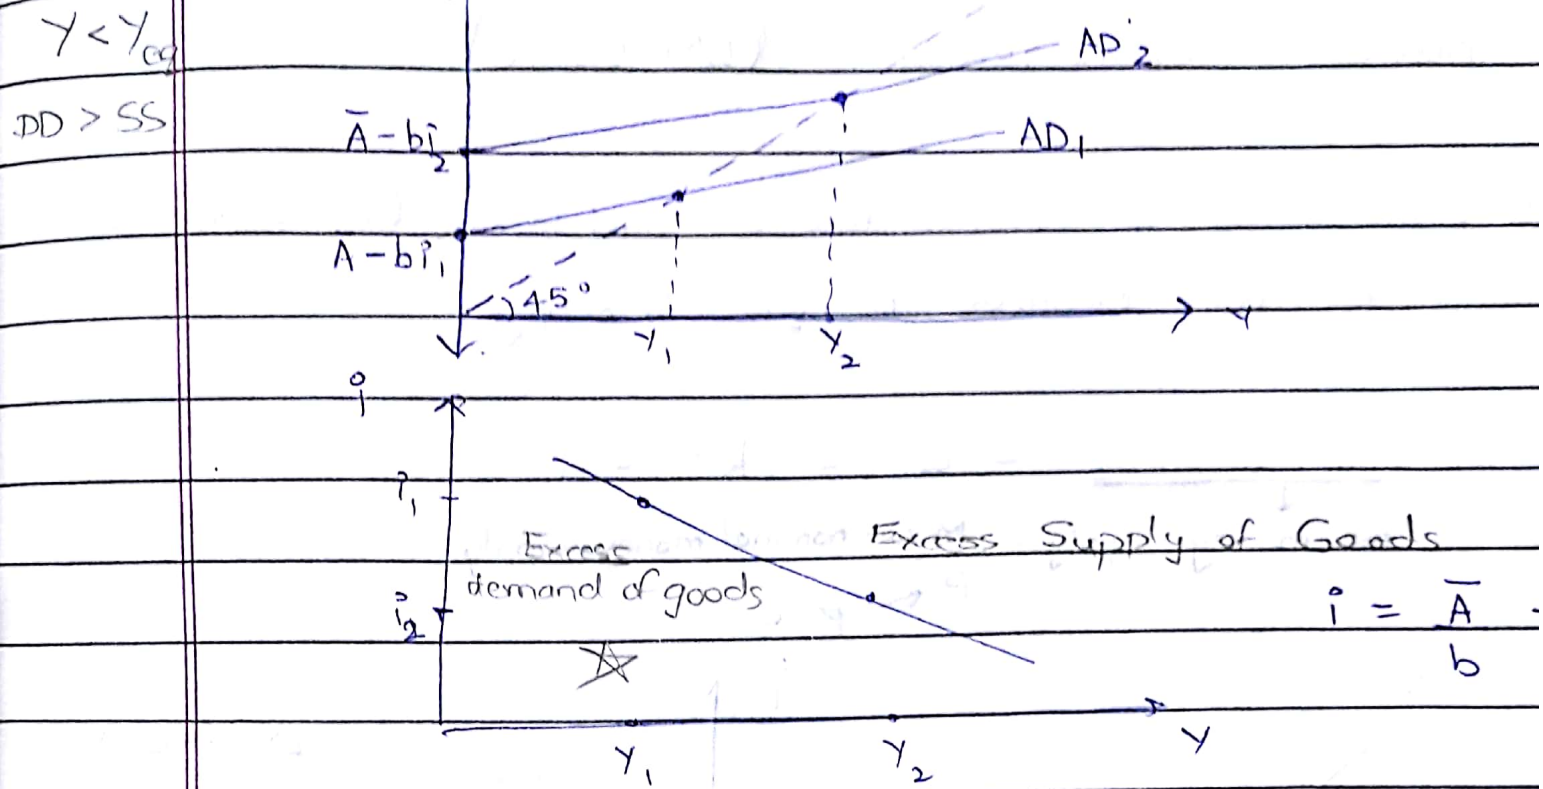 Y < Yeq
DD > SS
AD2
A̅ - bi2
AD1
A - bi1
45°
Y
Y1
Y2
i
i1
Excess
demand of goods
Excess Supply of Goods
i2
i = A̅
b
Y
Y1
Y2